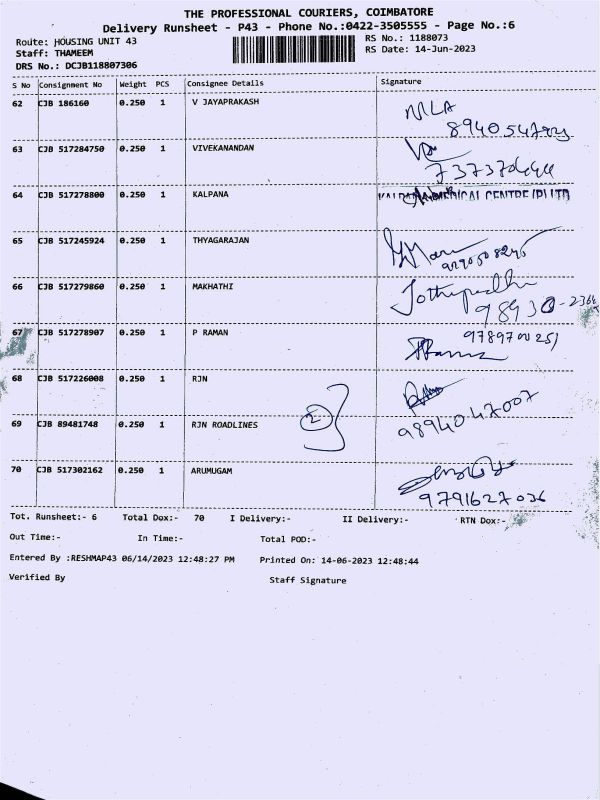 THE PROFESSIONAL COURIERS, COIMBATORE
Delivery Runsheet - P43 - Phone No.:0422-3505555 - Page No.:6
Route: HOUSING UNIT 43 RS No.: 1188073
Staff: THAMEEM RS Date: 14-Jun-2023
DRS No.: DCJB118807306
S No Consignment No Weight PCS Consignee Details Signature
62 CJB 186160 0.250 1 V JAYAPRAKASH
63 CJB 517284750 0.250 1 VIVEKANANDAN
64 CJB 517278800 0.250 1 KALPANA
MEDICAL CENTRE (P) LTD
65 CJB 517245924 0.250 1 THYAGARAJAN
66 CJB 517279860 0.250 1 MAKHATHI
67 CJB 517278907 0.250 1 P RAMAN
9789700251
68 CJB 517226008 0.250 1 RJN
2
69 CJB 89481748 0.250 1 RJN ROADLINES
9894047007
70 CJB 517302162 0.250 1 ARUMUGAM
9791627036
Tot. Runsheet:- 6 Total Dox:- 70 I Delivery:- II Delivery:- RTN Dox:-
Out Time:- In Time:- Total POD:-
Entered By :RESHMAP43 06/14/2023 12:48:27 PM Printed On: 14-06-2023 12:48:44
Verified By Staff Signature